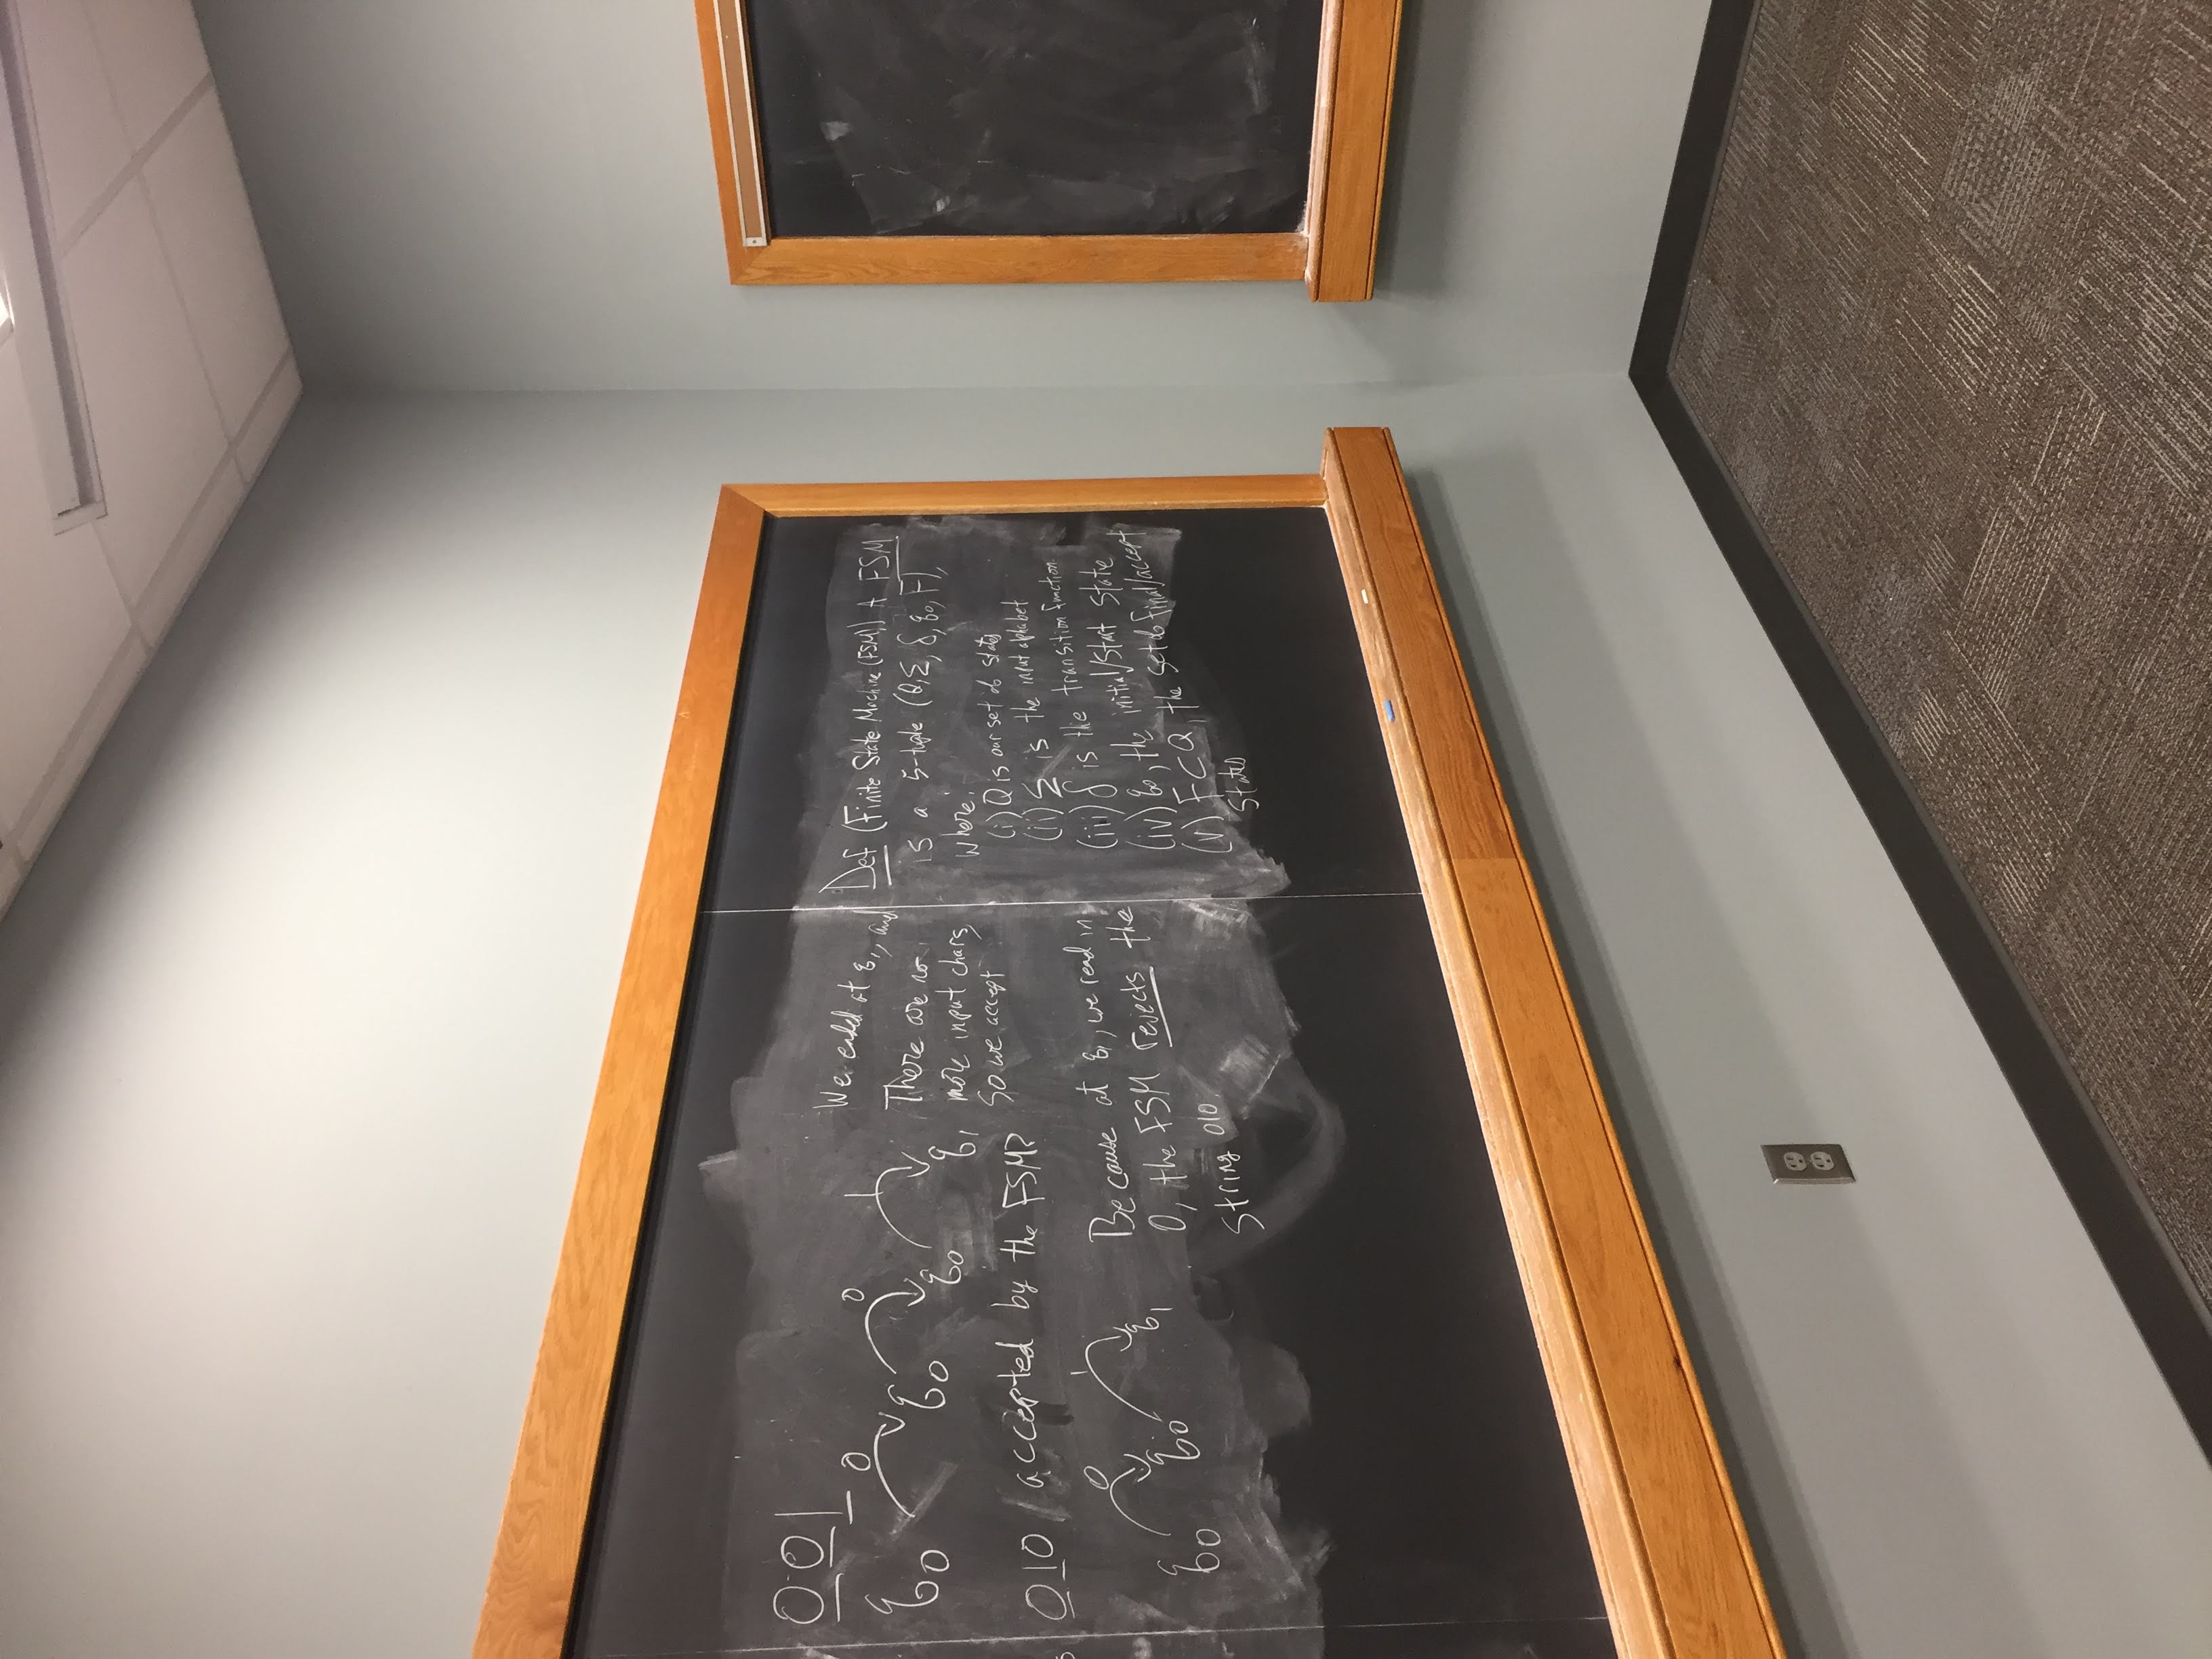 001
0 0 1
q0 q0 q0 q1
We ended at q1, and
There are no
more input chars,
So we accept
010 accepted by the FSM?
0 1
q0 q0 q1
Because at q1, we read in
0, the FSM rejects the
string 010.
Def (Finite State Machine (FSM)) A FSM
is a 5-tuple (Q,Σ, δ, q0, F),
where:
(i) Q is our set of states
(ii) Σ is the input alphabet
(iii) δ is the transition function
(iv) q0, the initial/start state
(v) F⊂Q, the set of final/accept
states